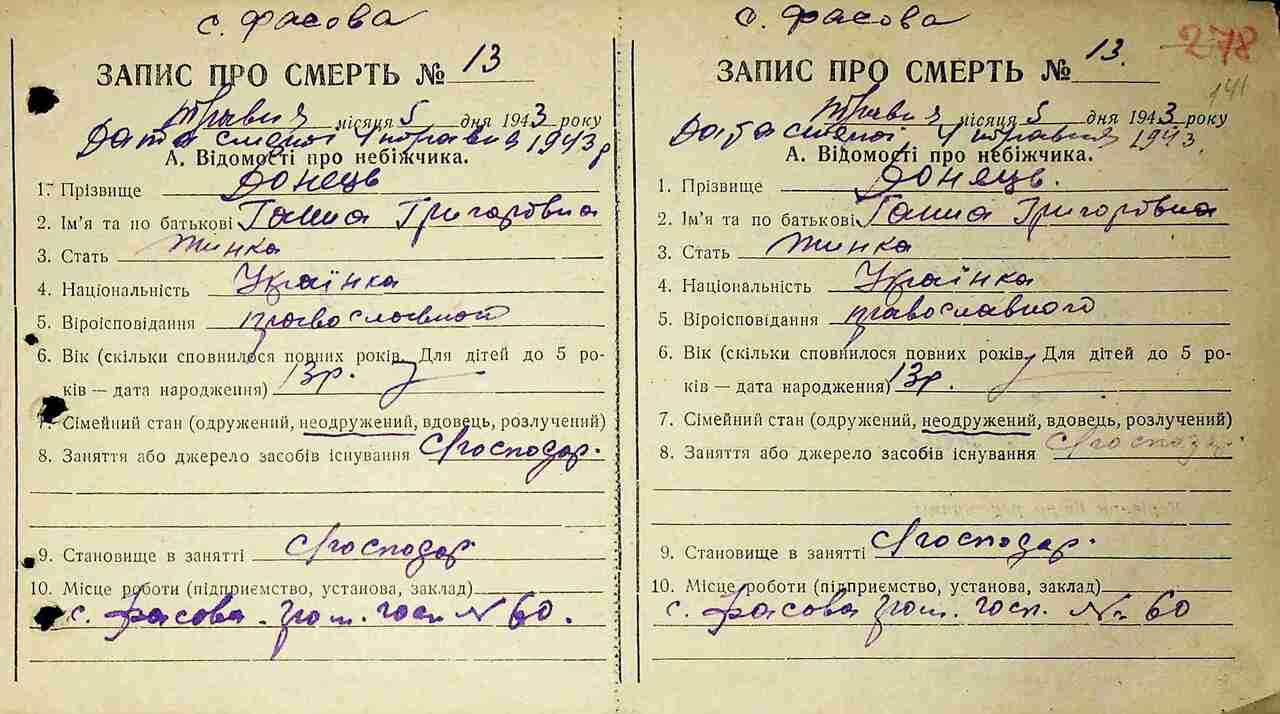 с. Фасова
ЗАПИС ПРО СМЕРТЬ № 13
Травня місяця 5 дня 1943 року
Дата смерті 4 травня 1943 р
А. Відомості про небіжчика.
1. Прізвище Донець
2. Ім'я та по батькові Ганна Григоровна
3. Стать жинка
4. Національність Українка
5. Віроісповідання православного
6. Вік (скільки сповнилося повних років. Для дітей до 5 ро-
ків — дата народження) 13 р.
7. Сімейний стан (одружений, неодружений, вдовець, розлучений)
8. Заняття або джерело засобів існування С/господар.
9. Становище в занятті С/господар
10. Місце роботи (підприємство, установа, заклад)
с. Фасова гром. госп № 60.
с. Фасова
278
141
ЗАПИС ПРО СМЕРТЬ № 13.
Травня місяця 5 дня 1943 року
Дата смерті 4 травня 1943.
А. Відомості про небіжчика.
1. Прізвище Донець.
2. Ім'я та по батькові Ганна Григоровна
3. Стать жинка
4. Національність Українка
5. Віроісповідання православного
6. Вік (скільки сповнилося повних років. Для дітей до 5 ро-
ків — дата народження) 13 р.
7. Сімейний стан (одружений, неодружений, вдовець, розлучений)
8. Заняття або джерело засобів існування С/господар
9. Становище в занятті С/господар.
10. Місце роботи (підприємство, установа, заклад)
с. Фасова гром. госп. № 60